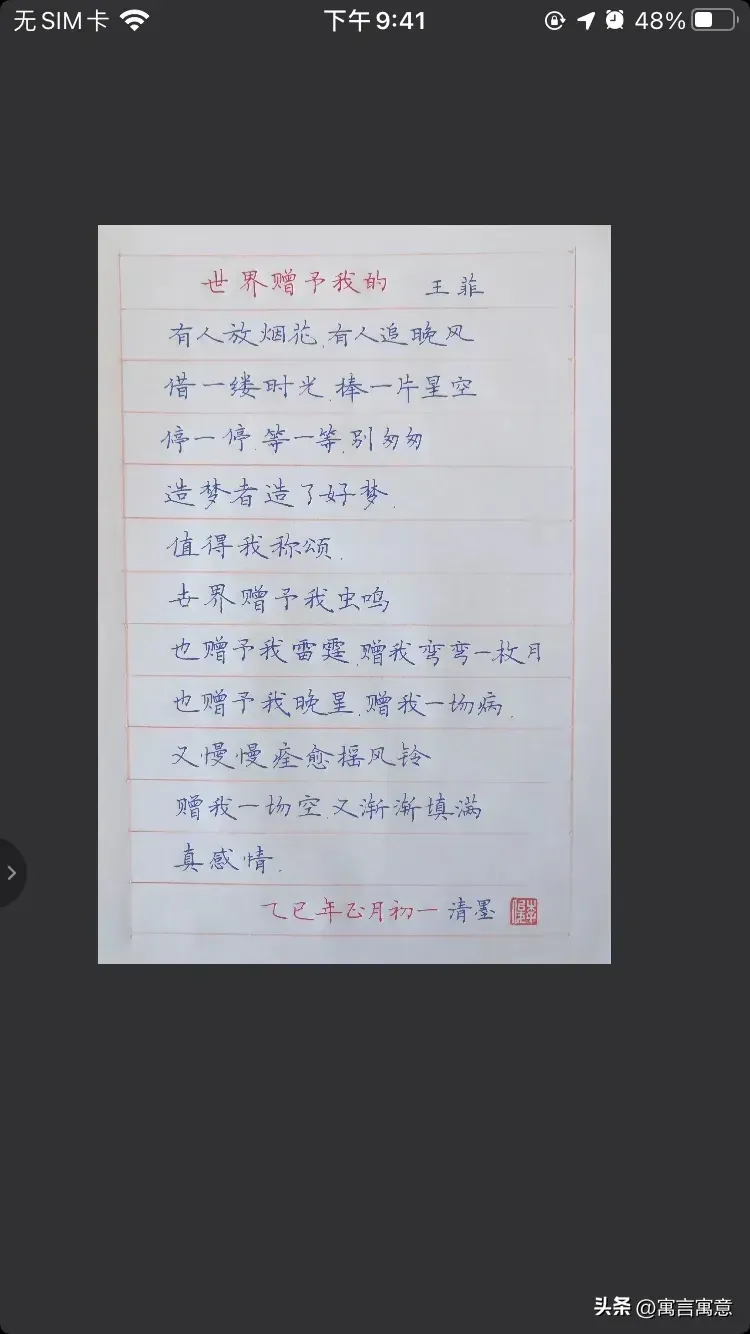 无SIM卡 下午9:41 48%
世界赠予我的 王菲
有人放烟花.有人追晚风
借一缕时光.捧一片星空
停一停.等一等.别匆匆
造梦者造了好梦.
值得我称颂.
世界赠予我虫鸣
也赠予我雷霆.赠我弯弯一枚月
也赠予我晚星.赠我一场病.
又慢慢痊愈摇风铃
赠我一场空.又渐渐填满
真感情.
乙巳年正月初一 清墨
头条 @寓言寓意